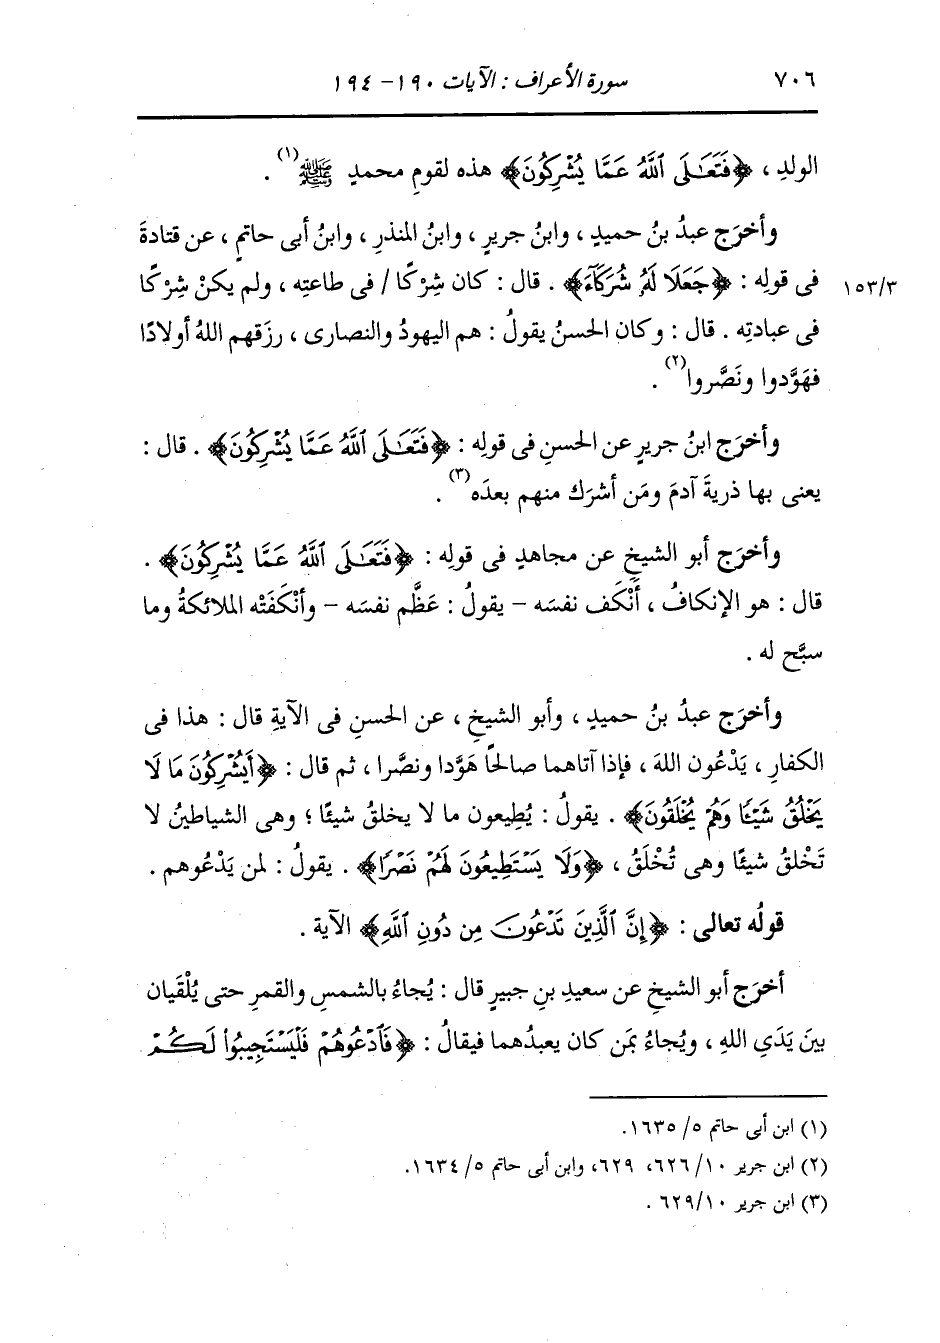 ٧٠٦ سورة الأعراف : الآيات ١٩٠- ١٩٤
الولدِ ، ﴿فَتَعَٰلَى ٱللَّهُ عَمَّا يُشْرِكُونَ﴾ هذه لقومِ محمدٍ ﷺ(١) .
وأخرَج عبدُ بنُ حميدٍ ، وابنُ جريرٍ ، وابنُ المنذرِ ، وابنُ أبى حاتمٍ ، عن قتادةَ
فى قولِه : ﴿جَعَلَا لَهُۥ شُرَكَآءَ﴾ . قال : كان شِرْكًا / فى طاعتِه ، ولم يكنْ شِرْكًا ١٥٣/٣
فى عبادتِه . قال : وكان الحسنُ يقولُ : هم اليهودُ والنصارى ، رزَقهم اللهُ أولادًا
فهَوَّدوا ونَصَّروا(٢) .
وأخرَج ابنُ جريرٍ عن الحسنِ فى قولِه : ﴿فَتَعَٰلَى ٱللَّهُ عَمَّا يُشْرِكُونَ﴾ . قال :
يعنى بها ذريةَ آدمَ ومَن أشرَك منهم بعدَه(٣) .
وأخرَج أبو الشيخِ عن مجاهدٍ فى قولِه : ﴿فَتَعَٰلَى ٱللَّهُ عَمَّا يُشْرِكُونَ﴾ .
قال : هو الإنكافُ ، أَنْكَف نفسَه - يقولُ : عَظَّم نفسَه - وأنْكَفَتْه الملائكةُ وما
سبَّح له .
وأخرَج عبدُ بنُ حميدٍ ، وأبو الشيخِ ، عن الحسنِ فى الآيةِ قال : هذا فى
الكفارِ ، يَدْعُون اللهَ ، فإذا آتاهما صالحًا هَوَّدا ونصَّرا ، ثم قال : ﴿أَيُشْرِكُونَ مَا لَا
يَخْلُقُ شَيْـًٔا وَهُمْ يُخْلَقُونَ﴾ . يقولُ : يُطيعون ما لا يخلقُ شيئًا ؛ وهى الشياطينُ لا
تَخْلقُ شيئًا وهى تُخْلَقُ ، ﴿وَلَا يَسْتَطِيعُونَ لَهُمْ نَصْرًا﴾ . يقولُ : لمن يَدْعُوهم .
قولُه تعالى : ﴿إِنَّ ٱلَّذِينَ تَدْعُونَ مِن دُونِ ٱللَّهِ﴾ الآية .
أخرَج أبو الشيخِ عن سعيدِ بنِ جبيرٍ قال : يُجاءُ بالشمسِ والقمرِ حتى يُلْقَيان
بينَ يَدَىِ اللهِ ، ويُجاءُ بمَن كان يعبدُهما فيقالُ : ﴿فَٱدْعُوهُمْ فَلْيَسْتَجِيبُوا۟ لَكُمْ
(١) ابن أبى حاتم ٥/ ١٦٣٥.
(٢) ابن جرير ١٠/ ٦٢٦، ٦٢٩، وابن أبى حاتم ٥/ ١٦٣٤.
(٣) ابن جرير ٦٢٩/١٠ .